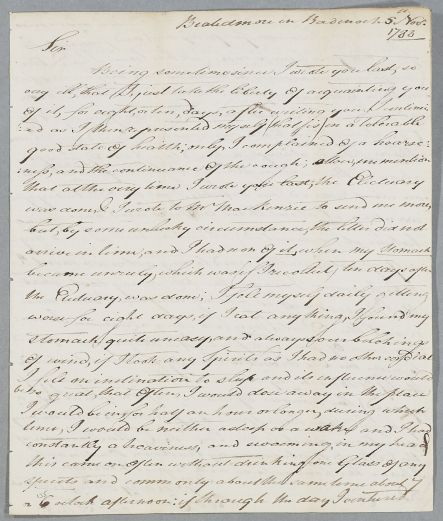 Bialidmore in Badenoch 5th Novr.
1788
Sir
Being sometime since I wrote you last, so
say all, that I just take the liberty of acquainting you
of it, for eight, or ten, days, after writing you I continu-
ed as I then represented myself (that is) in a tolerable
good state of health; only, I complained of a hoarse-
ness, and the continuance of the cough; allow me mention
that at the very time I wrote you last, the Electuary
was done, I wrote to Mr Mackenzie to send me more,
but, by some unlucky circumstance, the letter did not
arrive in time, and I had non of it, when my stomach
became unruly, which was if I recolect, ten days after
the Electuary, was done; I felt myself daily getting
worse for eight days, if I eat any thing, I found my
stomach, quite uneasy, and always sour belchings
of wind, if I took any Spirits as I had no
I felt an inclination to sleep and its influence would
be so great, that often, I would dose away in the place
I would be in for half an hour or longer, during which
time, I would be neither asleep or awake, and I had
constantly a heaviness, and swooming, in my head
this came on often without drinking one Glass of any
spirits and commonly about the same time about
6 oclock afternoon: if through the day I ventured